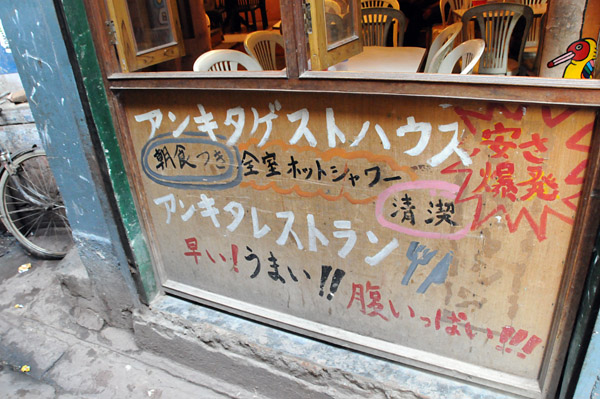 アンキタゲストハウス
安さ
爆発
朝食つき 全室ホットシャワー
清潔
アンキタレストラン
早い!うまい!!
腹いっぱい!!!